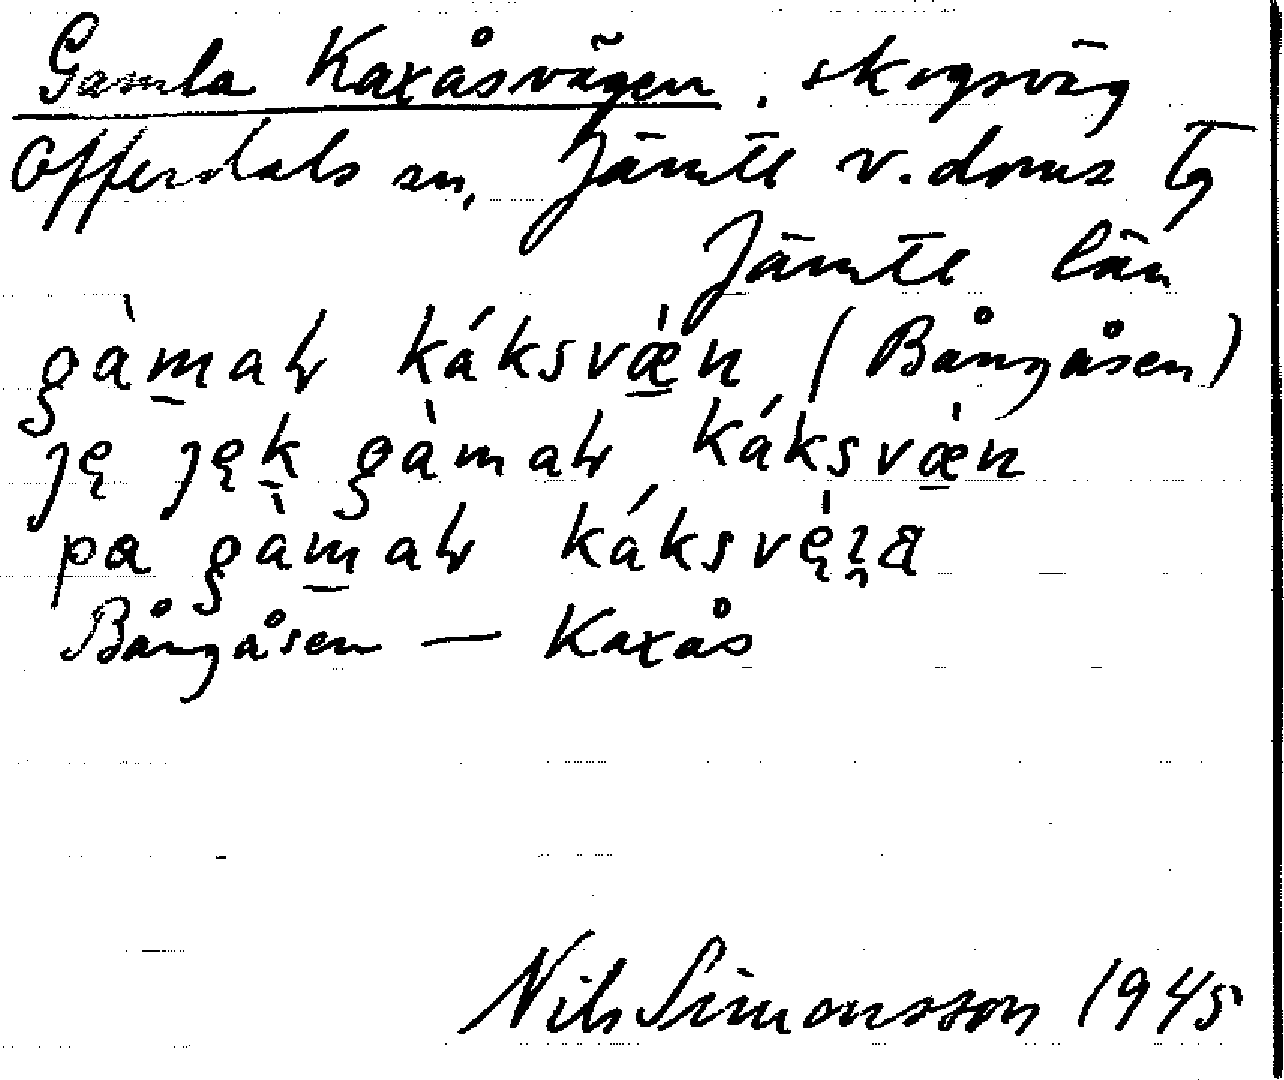 Gamla Kaxåsvägen. skogsväg
Offerdals sn, Jämtl v. doms Tg
Jämtl län
gàm̲aƚ káksvæ̲̀n (Bångåsen)
ję jęk gàmaƚ káksvæ̲̀n
pa gàm̲aƚ káksvę́
Bångåsen — Kaxås
Nils Simonsson 1945